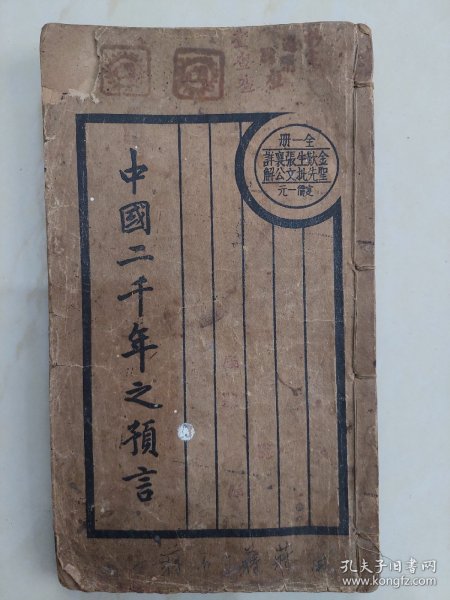 全一册
金聖歎先生批張文襄公詳解
定價一元
中國二千年之預言
孔夫子旧书网
www.kongfz.com